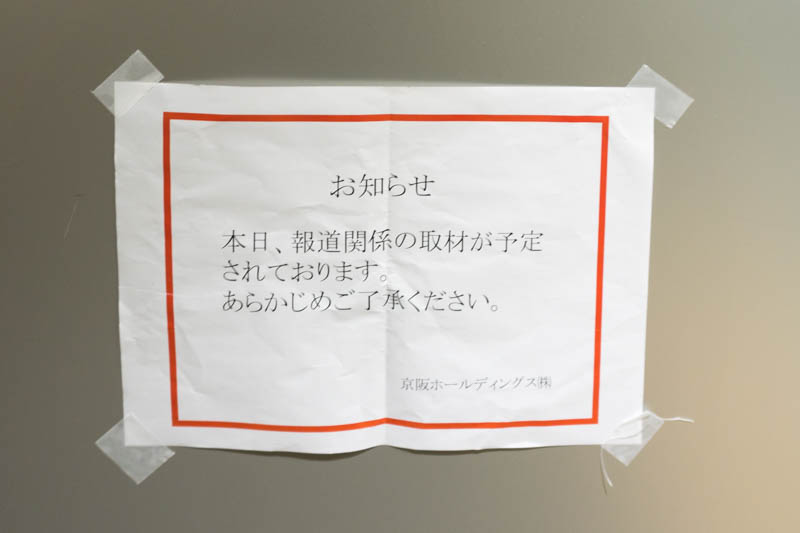 お知らせ
本日、報道関係の取材が予定
されております。
あらかじめご了承ください。
京阪ホールディングス㈱